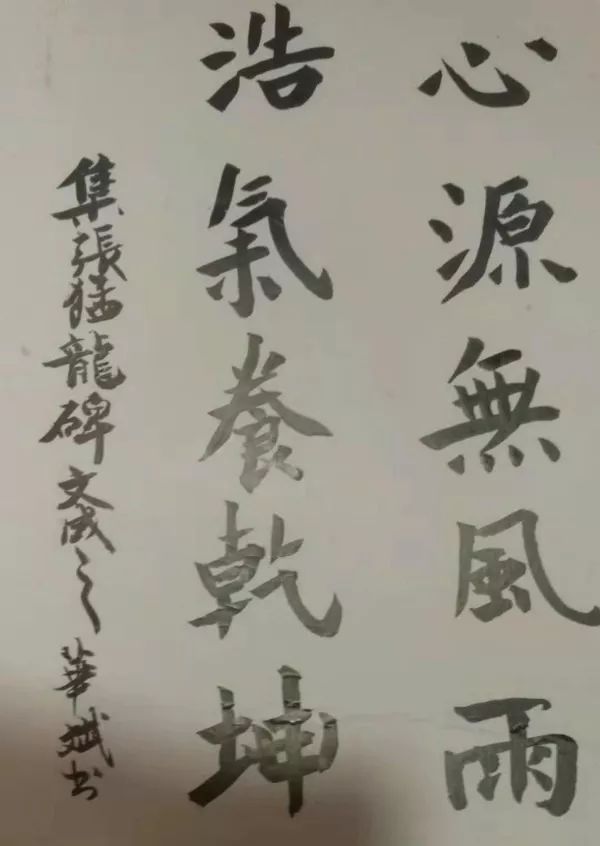 心源無風雨
浩氣養乾坤
集張猛龍碑文成之 華斌書